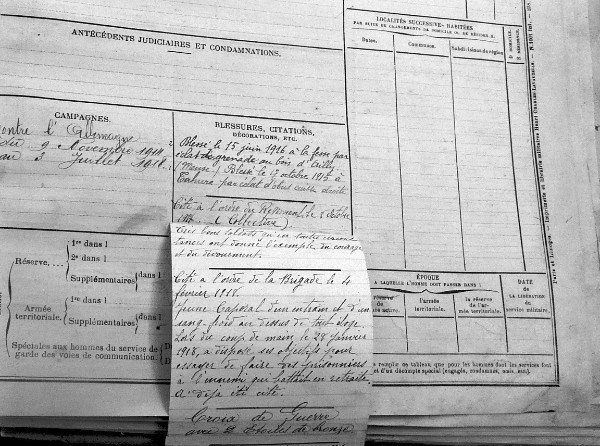 ANTÉCÉDENTS JUDICIAIRES ET CONDAMNATIONS.
LOCALITÉS SUCCESSIVES HABITÉES
PAR SUITE DE CHANGEMENTS DE DOMICILE OU DE RÉSIDENCE.
Dates.
Communes.
Subdivisions de région
CAMPAGNES.
contre l'Allemagne
du 9 Novembre 1914
au 3 Juillet 1918
BLESSURES, CITATIONS,
DÉCORATIONS, ETC.
Blessé le 15 juin 1916 à la fesse par
éclat de grenade au bois d'Ailly
(Meuse) Blessé le 17 octobre 1915 à
Tahure par éclat d'obus cuisse droite
Cité à l'ordre du Régiment le 5 Octobre
(Collective)
Très bons soldats qui en toutes circons
tances ont donné l'exemple du courage
et du dévouement.
Cité à l'ordre de la Brigade le 4
février 1918.
Jeune Caporal d'un entrain et d'un
sang-froid au dessus de tout éloge.
Lors du coup de main le 28 janvier
1918, a dépassé ses objectifs pour
essayer de faire des prisonniers
à l'ennemi qui battait en retraite.
A déjà été cité.
Croix de Guerre
avec 2 Etoiles de bronze
Réserve....
1re dans l
2e dans l
Supplémentaires
dans l
Armée
territoriale.
1re dans l
Supplémentaires
dans l
Spéciaux aux hommes du service de
garde des voies de communication.
ÉPOQUE
A LAQUELLE L'HOMME DOIT PASSER DANS :
réserve de
mée active.
l'armée
territoriale.
la réserve de
l'armée territoriale.
DATE
DE LA LIBÉRATION
du
service militaire.
remplir ce tableau que pour les hommes dont les services font
et d'un décompte spécial (engagés, condamnés, omis, etc.)